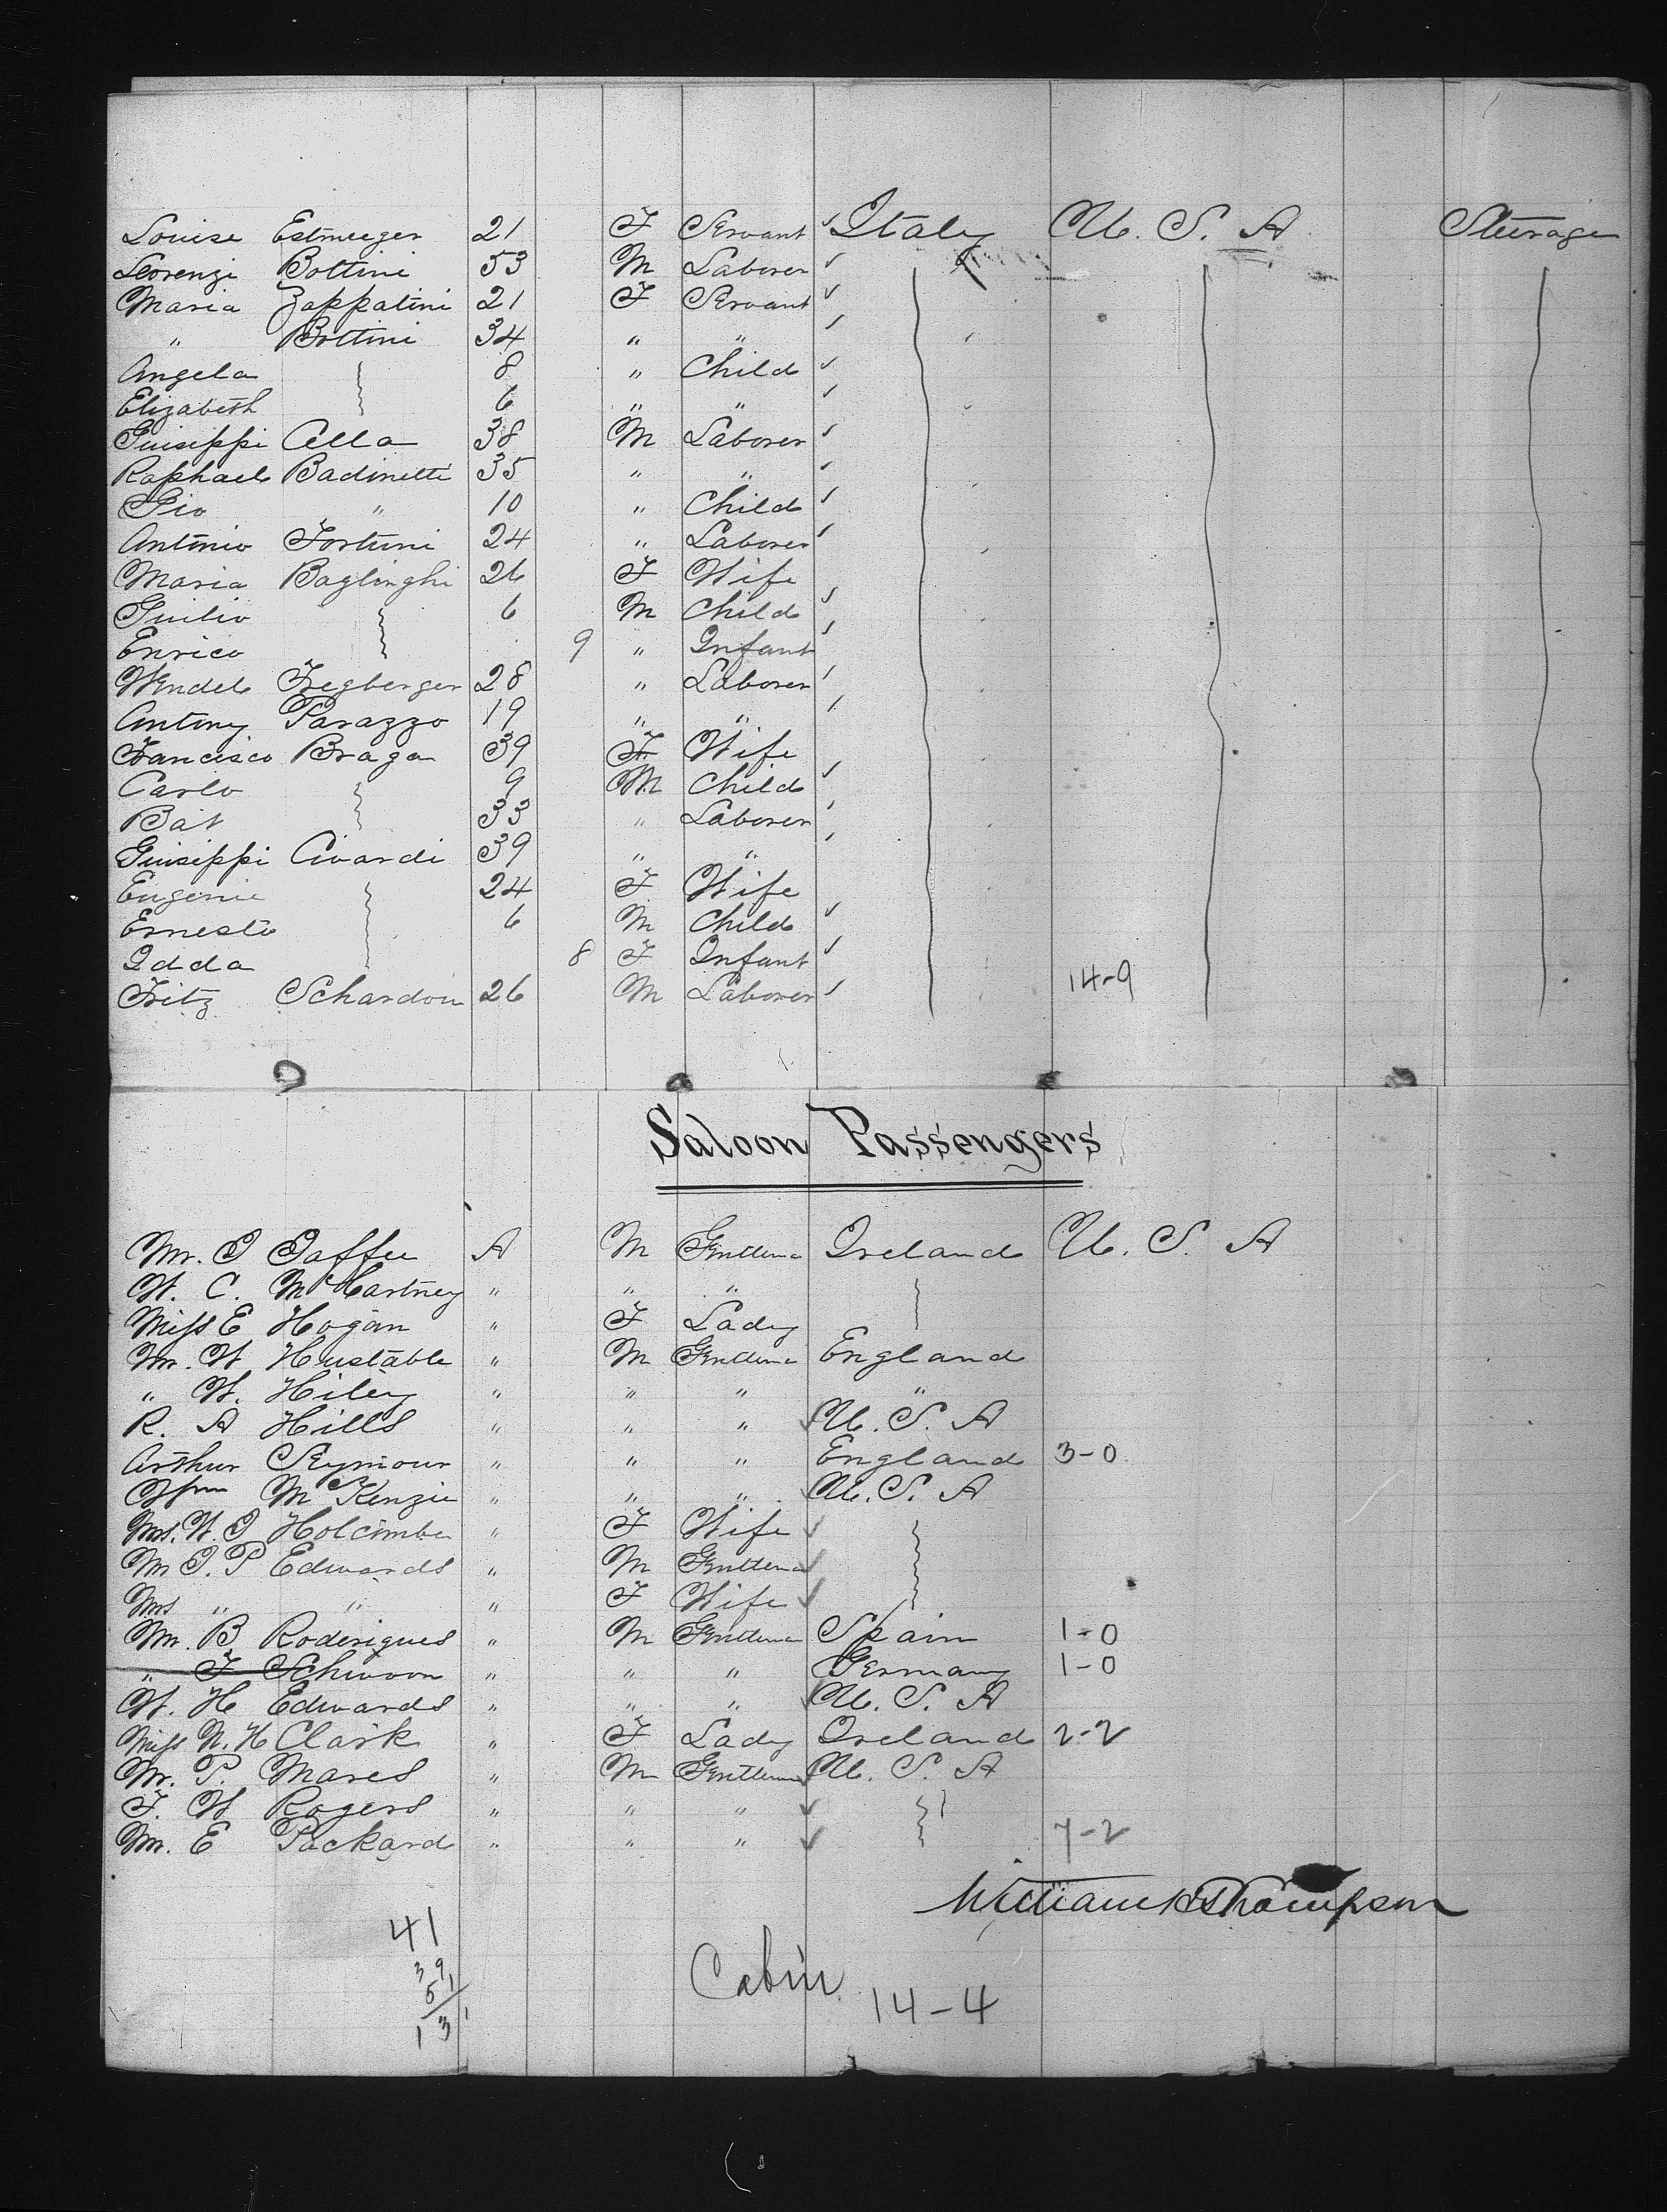 Louise Estmeeger 21 F Servant Italy U. S. A Steerage
Leorenzi Bottini 53 M Laborer
Maria Zappatini 21 F Servant
" Bottini 34 " "
Angela 8 " Child
Elizabeth 6 " "
Guiseppi Alla 38 M Laborer
Raphael Badinetti 35 " "
Gio " 10 " Child
Antonio Fortuni 24 " Laborer
Maria Baglinghi 26 F Wife
Guilio 6 M Child
Enrico 9 " Infant
Wendel Fregberger 28 " Laborer
Antony Parazzo 19 " "
Francisco Braga 39 F Wife
Carlo 9 M Child
Bat 33 " Laborer
Guiseppi Civardi 39 " "
Eugenie 24 F Wife
Ernesto 6 M Child
Idda 8 F Infant
Fritz Schardon 26 M Laborer 14-9
Saloon Passengers
Mr. J Jaffee A M Gentlema Ireland U. S. A
W. C. McCartney " " "
Miss E Hogan " F Lady
Mr. W Hustable " M Gentlema England
" W. Hiley " " " "
R. A Hills " " " U. S. A
Arthur Seymour " " " England 3-0
Wm McKenzie " " " U. S. A
Mrs. W. J Holcombe " F Wife
Mr J. P Edwards " M Gentlema
Mrs " " " F Wife
Mr. B. Roderigues " M Gentlema Spain 1-0
" F Schwoon " " " Germany 1-0
W. H Edwards " " " U. S. A
Miss N. H Clark " F Lady Ireland 2-2
Mr. P. Mares " M Gentlema U. S. A
F. W Rogers " " "
M. E Packard " " " 7-2
William Thompson
41
39
51
131
Cabin 14-4